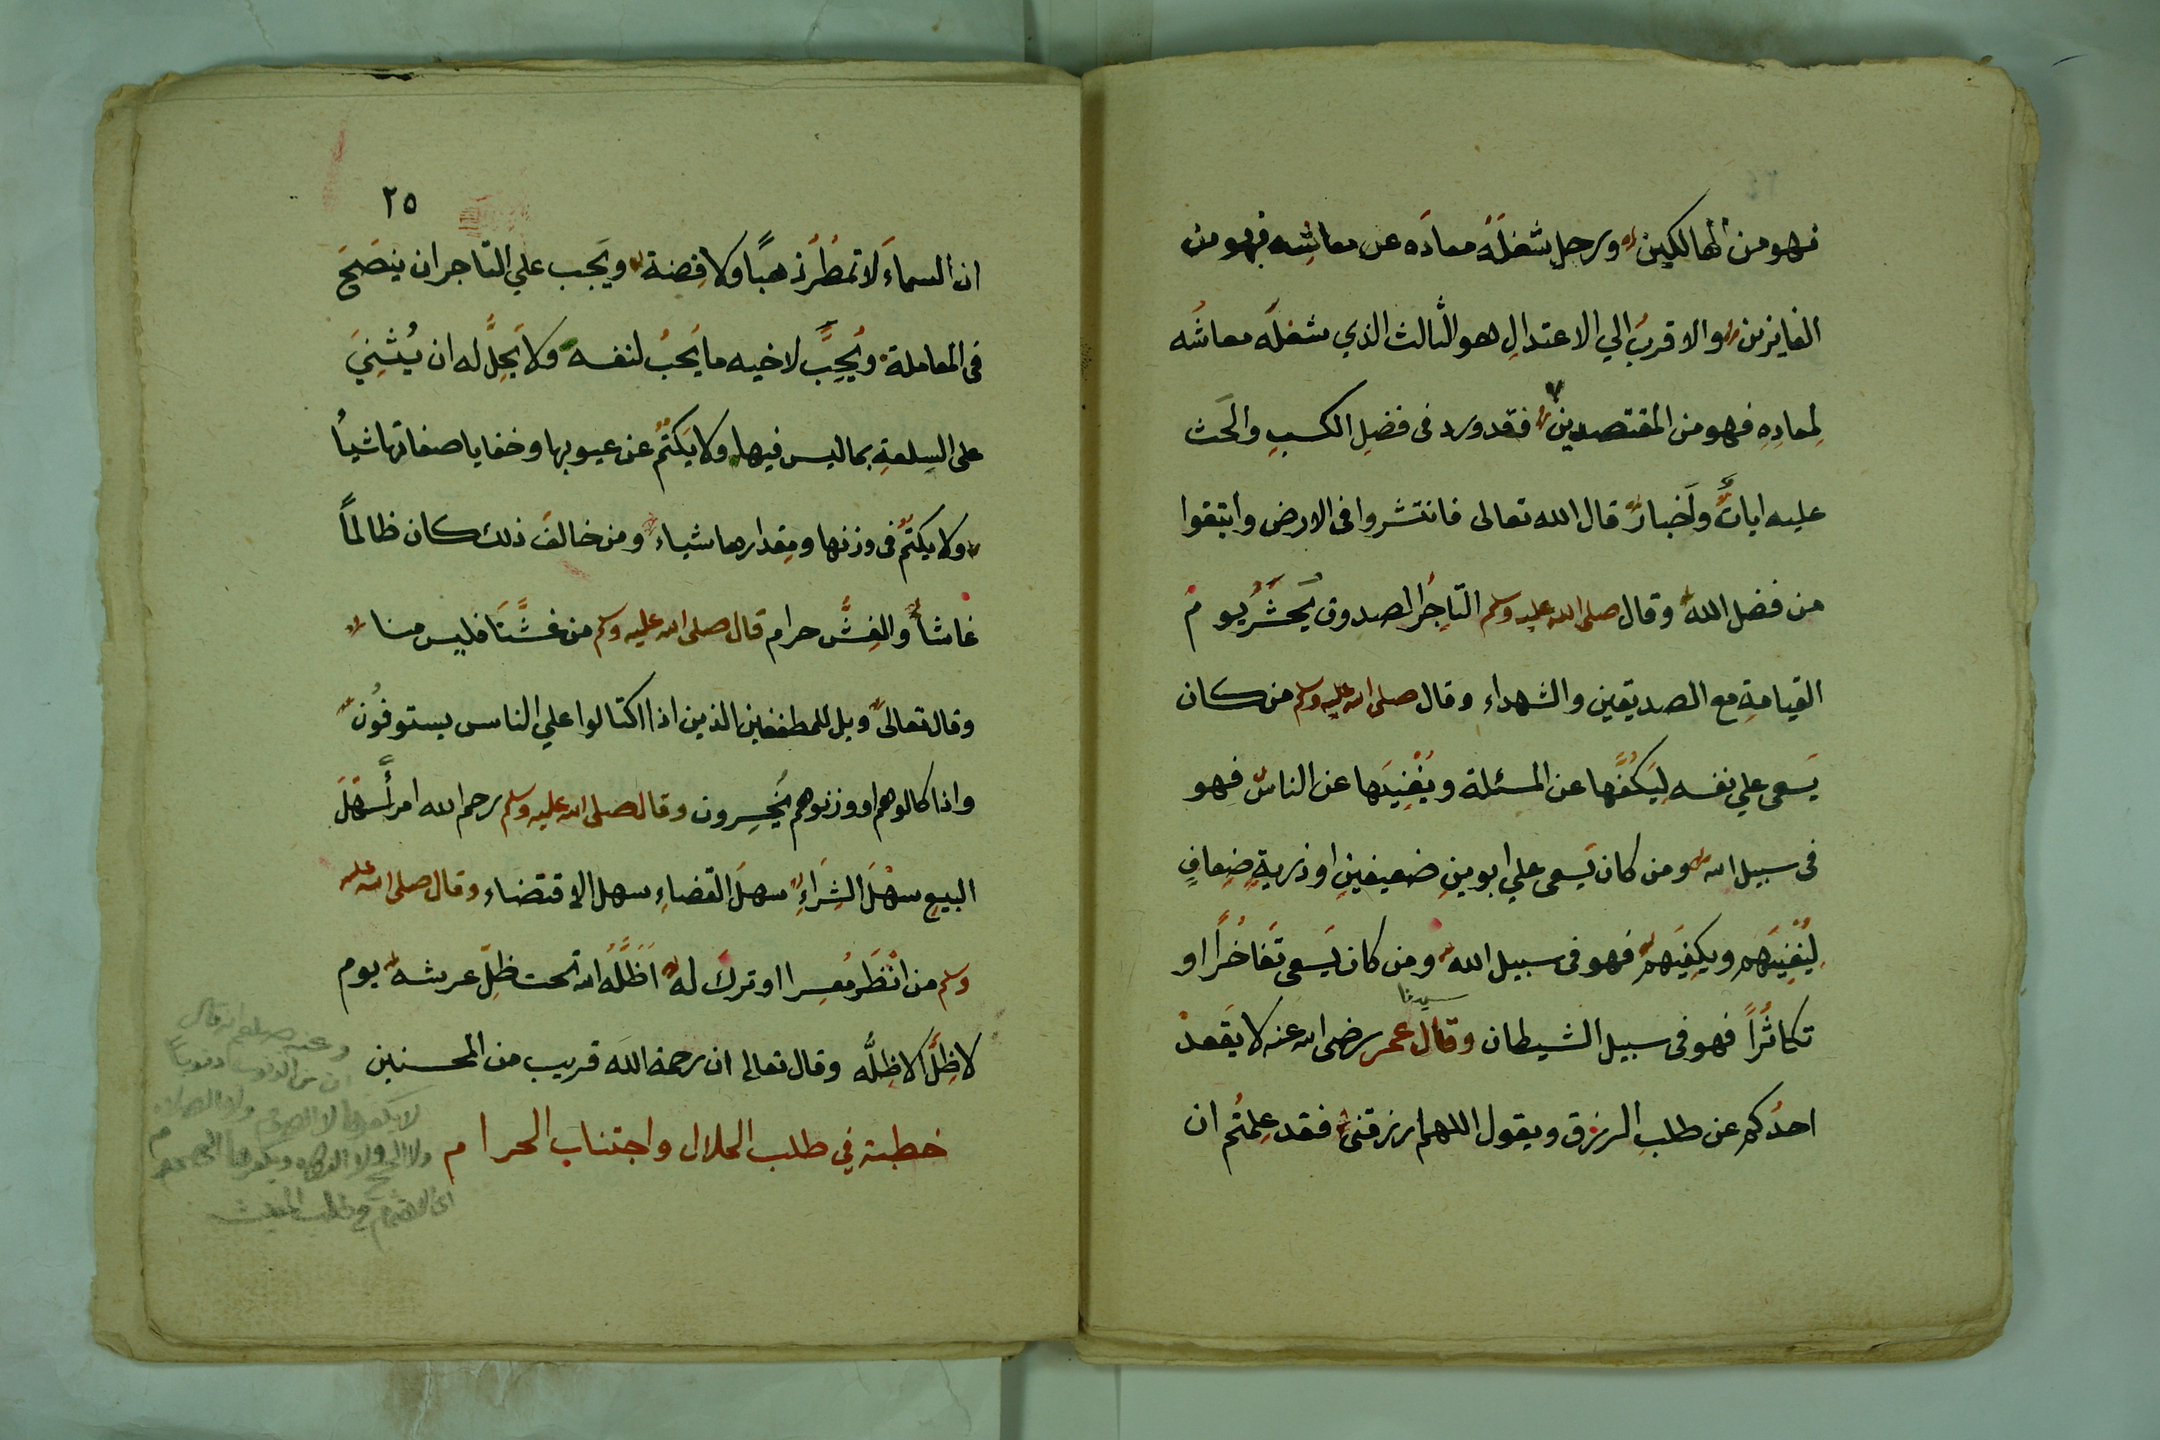 فهو من الهالكين ورجل شغلَهُ معادَه عن معاشِه فهو من
الفايزين والاقربُ الي الاعتدالِ هو الثَّالث الذي شغلَه معاشُه
لِمعادِهِ فهو من المقتصدين فقد ورد فى فضلِ الكسبِ والحَث
عليه اياتٌ واَخبارٌ قال الله تعالى فانتشروا فى الارض وابتغوا
من فضل الله وقال صلى الله عليه وسلم التاجرُ الصدوق يُحْشَرُ يوم
القيامةِ مع الصديقين والشهداء وقال صلى الله عليه وسلم من كان
يَسعى علي نفسه لِيَكُفَّها عن المسئلة ويُغْنِيَها عن الناس فهو
فى سبيل الله ومن كان يَسعى علي ابوينِ ضعيفينِ او ذريةٍ ضِعافٍ
لِيُغْنِيَهم ويكفِيَهم فهو فى سبيل الله ومن كان يَسعى تَفاخُرًا او
سيدنا
تكاثُرًا فهو فى سبيل الشيطان وقال عمر رضى الله عنه لا يَقعدْ
احدُكم عن طلبِ الرزق ويقول اللهم ارزقنى فقد عِلمتُم ان
٢٥
ان السماءَ لا تمطُرُ ذهبًا ولا فِضة ويَجب علي التاجر ان ينصَحَ
فى المعاملة ويُحِبَّ لاخيه ما يَحبُ لنفسه ولا يَحِلُّ له ان يُثْنِيَ
على السِلعةِ بما ليس فيها ولا يَكتُمُ عن عيوبها وخفايا صفاتها شيأ
ولا يكتمُ فى وزنها ومِقدارها شياء ومن خالفَ ذلك كان ظالماً
غاشاً والغِشُّ حرام قال صلى الله عليه وسلم من غشَّنَا فليس منا
وقال تعالى ويل للمطففين الذين اذا اكتالوا علي الناس يستوفُون
واذا كالوهم او وزنوهم يُخْسِرون وقال صلى الله عليه وسلم رحم الله امرأً سَهْلَ
البيعِ سهْلَ الشِرَاءِ سهلَ القضاءِ سهل الاقتضاء وقال صلى الله عليه
وسلم من انْظَر مُعسِرا او تركَ له اَظَلَّهُ الله تحت ظِلّ عرشه يوم
لا ظِلَّ الا ظِلُّه وقال تعالى ان رحمة الله قريب من المحسنين
خطبة في طلب الحلال واجتناب الحرام
وعنه صلعم انه قال
ان من الذنوب ذنوبا
لا يكفرها لا الصوم ولا الصلاة
ولا الحج ولا ويكفرها
فى طلب المعيشة